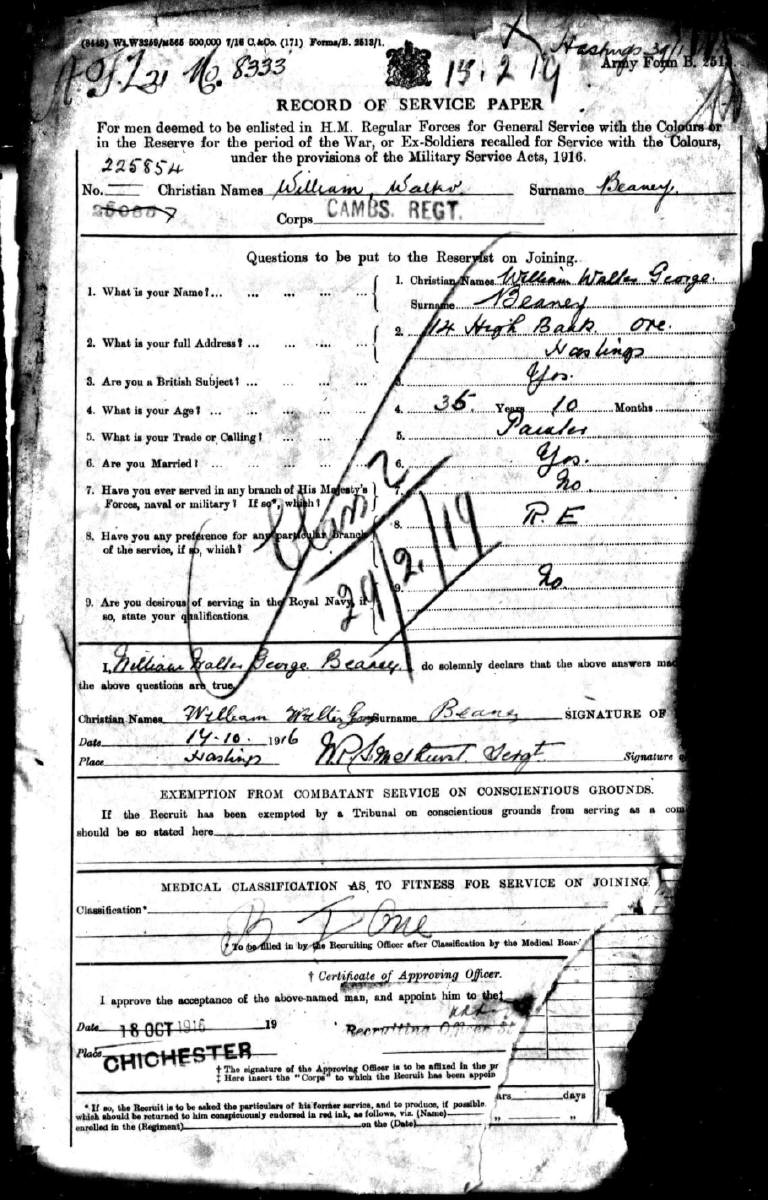 (8448) Wt.W3259/M565 500,000 7/16 C.&Co. (171) Forms/B. 2513/1.
Hastings
No. 8333
15.2.19
Army Form B. 2513.
RECORD OF SERVICE PAPER
For men deemed to be enlisted in H.M. Regular Forces for General Service with the Colours or
in the Reserve for the period of the War, or Ex-Soldiers recalled for Service with the Colours,
under the provisions of the Military Service Acts, 1916.
225854
No. Christian Names William, Walter Surname Beaney.
Corps CAMBS. REGT.
Questions to be put to the Reservist on Joining.
1. What is your Name?... ... ... ... ... 1. Christian Names William Walter George.
Surname Beaney
2. What is your full Address? ... ... ... ... 2. 14 High Bank Ore.
Hastings
3. Are you a British Subject? ... ... ... 3. Yes.
4. What is your Age? ... ... ... ... 4. 35 Years 10 Months
5. What is your Trade or Calling? ... ... ... 5. Painter
6. Are you Married? ... ... ... ... 6. Yes.
7. Have you ever served in any branch of His Majesty's
Forces, naval or military? If so*, which? 7. No
8. Have you any preference for any particular branch
of the service, if so, which? 8. R.E
9. Are you desirous of serving in the Royal Navy, if
so, state your qualifications. 9. No
Class 2
24/2/19
I, William Walter George Beaney. do solemnly declare that the above answers
the above questions are true.
Christian Names William Walter Surname Beaney SIGNATURE OF
Date 14.10. 1916 Sergt. Signature
Place Hastings
EXEMPTION FROM COMBATANT SERVICE ON CONSCIENTIOUS GROUNDS.
If the Recruit has been exempted by a Tribunal on conscientious grounds from serving as a com
should be so stated here
MEDICAL CLASSIFICATION AS TO FITNESS FOR SERVICE ON JOINING.
Classification* B One
* To be filled in by the Recruiting Officer after Classification by the Medical Boar
† Certificate of Approving Officer.
I approve the acceptance of the above-named man, and appoint him to the‡
Date 18 OCT 1916 19 Recruiting Officer
Place CHICHESTER
† The signature of the Approving Officer is to be affixed in the pr
‡ Here insert the "Corps" to which the Recruit has been appoin
ars days
* If so, the Recruit is to be asked the particulars of his former service, and to produce, if possible.
which should be returned to him conspicuously endorsed in red ink, as follows, viz. (Name)
" "
enrolled in the (Regiment) on the (Date)